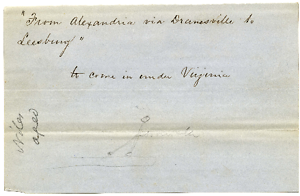 "From Alexandria via Dranesville to
Leesburg"
to come in under Virginia